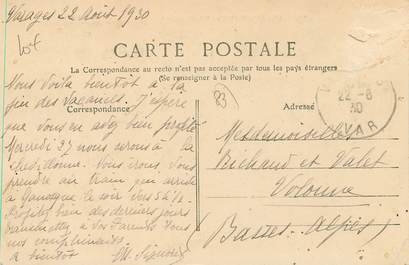 Varages 22 Août 1930
CARTE POSTALE
La Correspondance au recto n'est pas acceptée par tous les pays étrangers
(Se renseigner à la Poste)
Correspondance
Adresse
Nous Voilà bientôt à la
fin des vacances. J'espère
que vous en avez bien profité
Mercredi 27 nous serons à la
Vous irons vous
prendre au train qui arrive
à le soir vers 5h 1/2
Profitez bien des derniers jours
à vos Parents Tous
nos compliments
à bientôt
(83)
22-8
30
VAR
Mesdemoiselles
Richaud et Valet
Volonne
Basses-Alpes